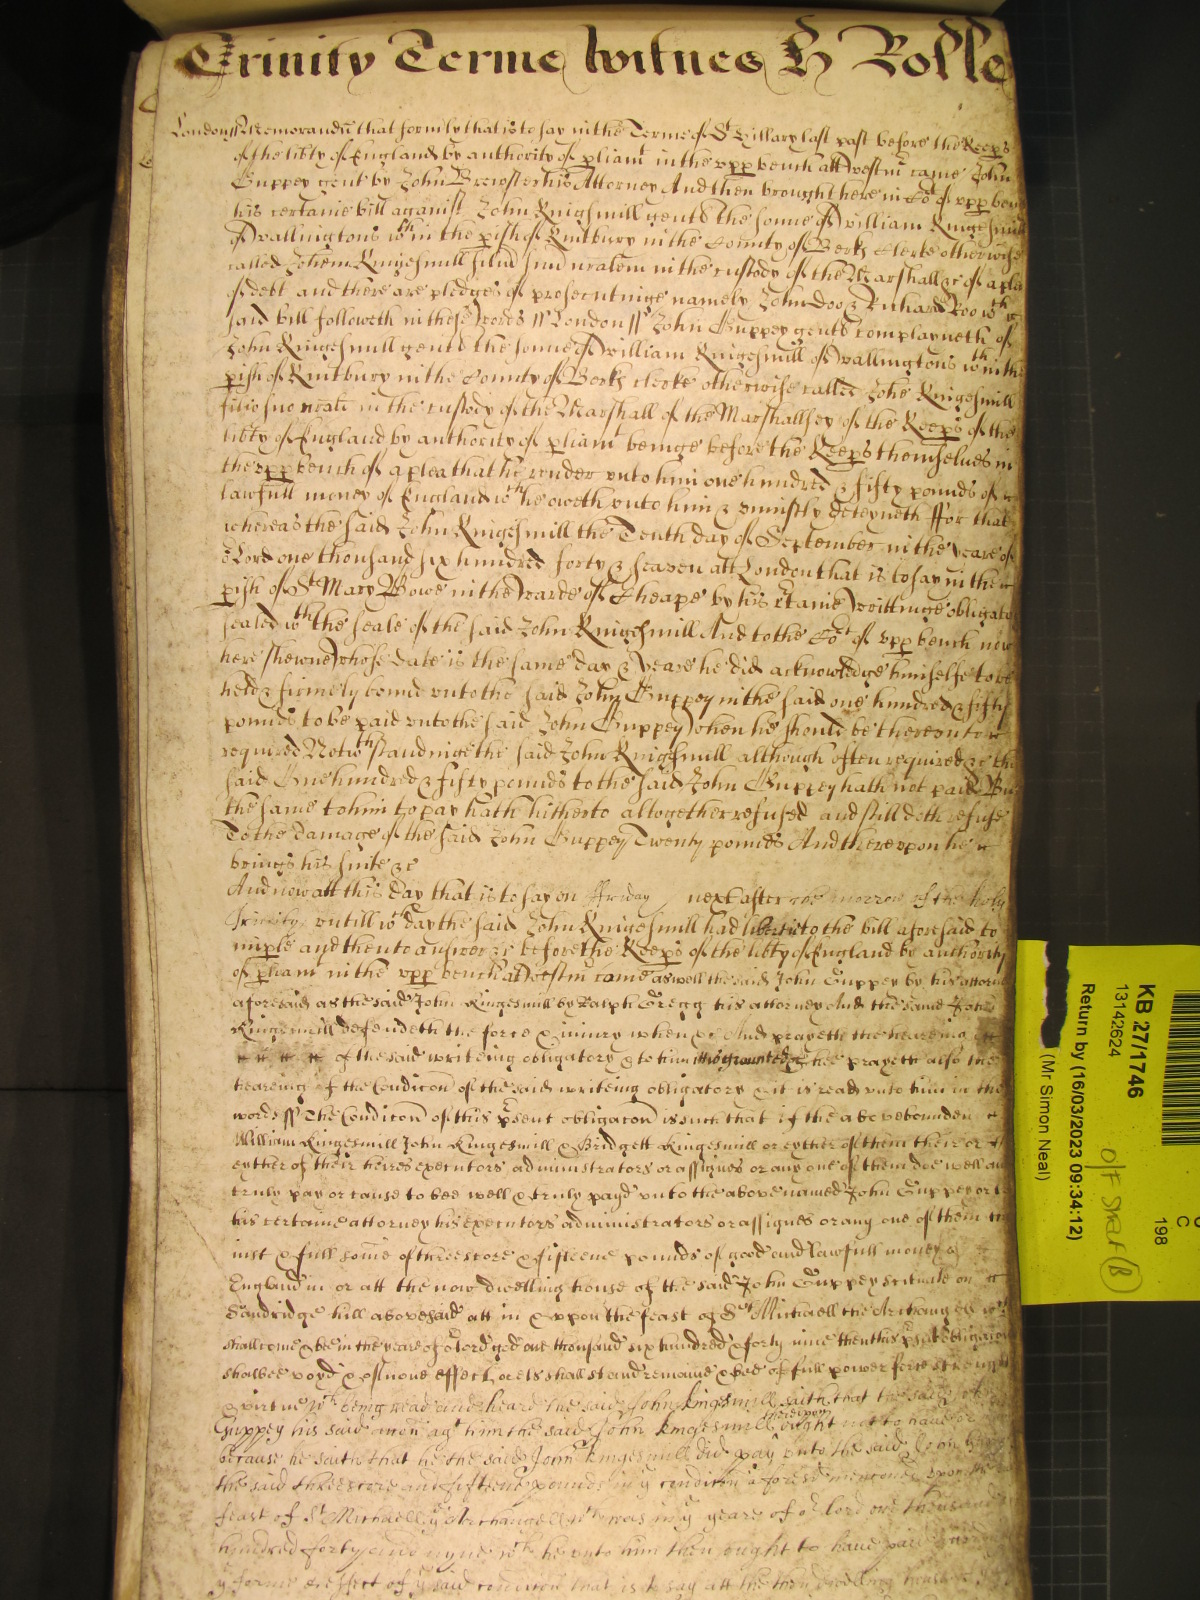 Trinity Terme Witnes H Rolle
London ss Memorand that formerly that is to say in the Terme of St Hillary last past before the Keeps
of the libty of England by authority of pliamt in the vpp bench att Westm came John
Guppey gent by John Brewster his Attorney And then brought here in Cot of vpp ben
his certaine bill against John Kingesmill gent the sonne of William Kingesmill
of Wallingtons wth in the pish of Kintbury in the County of Berks Clerke otherwise
called Johem Kingesmill filiu suu nralem in the custody of the Marshall &c of a plea
of debt and there are pledges of prosecutinge namely John Doo & Richard Roo wch
said bill followeth in these words ss London ss John Guppey gent complayneth of
John Kingesmill gent the sonne of William Kingesmill of Wallingtons wth in the
pish of Kintbury in the County of Berks clerke otherwise called Johe Kingesmill
filio suo nrali in the custody of the Marshall of the Marshallsey of the Keeps of the
libty of England by authority of pliamt beinge before the Keeps themselues in
the vpp bench of a plea that he render vnto him one hundred & fifty pounds of
lawfull money of England wch he oweth vnto him & vniustly deteyneth ffor that
whereas the said John Kingesmill the Tenth day of September in the yeare of
or Lord one thousand six hundred forty & seaven att London that is to say in the
pish of St Mary Bowe in the Warde of Cheape by his ctaine writtinge obligato
sealed wth the seale of the said John Kingesmill And to the Cot of vpp bench now
here shewne whose date is the same day & yeare he did acknowledge himselfe to be
held & firmely bound vnto the said John Guppey in the said one hundred & fifty
pounds to be paid vnto the said John Guppey when he should be therevnto
required Notwthstandinge the said John Kingesmill although often required &c the
said One hundred & fifty pounds to the said John Guppey hath not paid But
the same to him to pay hath hitherto altogether refused and still doth refuse
To the damage of the said John Guppey Twenty pounds And therevpon he
brings his suite &c
And now att this day that is to say on ffriday next after the morrow of the holy
Trinity vntill wch day the said John Kingesmill had libertie to the bill aforesaid to
imple and then to answer &c before the Keeps of the libty of England by authority
of pliam in the vpp bench at Westm came aswell the said John Guppey by his attorn
aforesaid as the said John Kingesmill by Ralph Gregg his attorney And the same John
Kingesmill defendeth the force & iniury when &c And prayeth the heareing
of the said writeing obligatory & to him hee prayeth also the
heareing of the Condicon of the said writeing obligatory & it is read vnto him in the
words ss The Condicon of this psent obligacon is such that if the abovebounden
William Kingesmill John Kingesmill & Bridgett Kingesmill or eyther of them their or
eyther of their heires executors administrators or assignes or any one of them doe well and
truly pay or cause to bee well & truly payd vnto the above named John Guppey or to
his certaine attorney his executors administrators or assignes or any one of them the
iust & full some of threescore & fifteene pounds of good and lawfull money of
England in or att the now dwelling house of the said John Guppey scituate on
Sandridge hill abovesaid att in & vpon the feast of St Michaell the Archangell wch
shall come & bee in the yeare of or lord god one thousand six hundred & forty nine then this psent obligacon
shalbee voyd & of none effect or els shall stand remaine & bee of full power force strength
& virtue wch being read and heard the said John kingesmill saith that the said John
Guppey his said accon agt him the said John kingesmill therevpon ought not to haue or
because he saith that he the said John kingesmill did pay vnto the said John Guppey
the said threescore and fifteene pounds in ye condicon aforesd menconed vpon the
feast of St Michaell ye Archangell wch was in ye yeare of or lord one thousand
hundred forty and nyne wch he vnto him then ought to haue paid
ye forme & effect of ye said condicon that is to say att the then dwelling house
KB 27/1746
13142624
Return by (16/03/2023 09:34:12)
(Mr Simon Neal)
198
C
O/F Shelf (B)